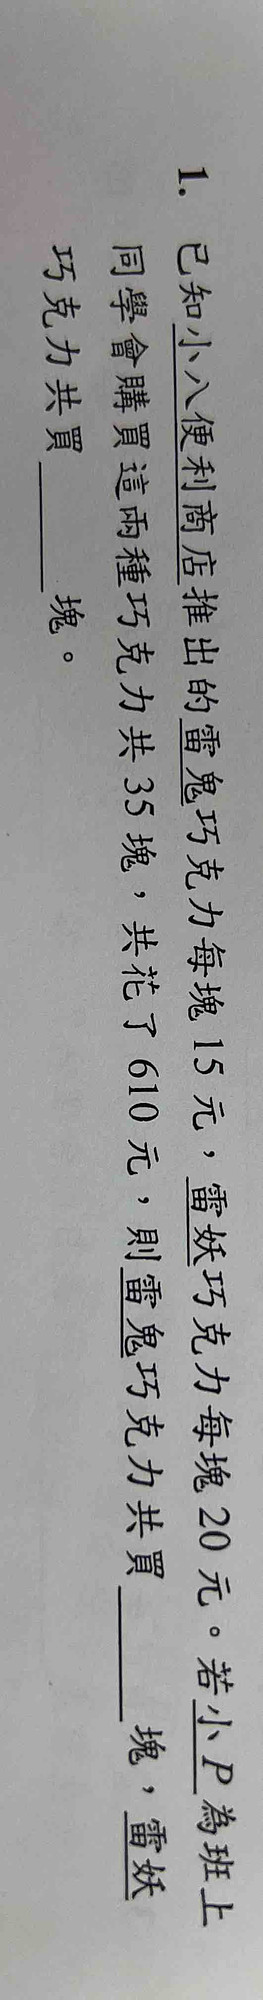 1. 已知小八便利商店推出的雷鬼巧克力每塊 15 元，雷妖巧克力每塊 20 元。若小P為班上
同學會購買這兩種巧克力共 35 塊，共花了 610 元，則雷鬼巧克力共買______塊，雷妖
巧克力共買______塊。